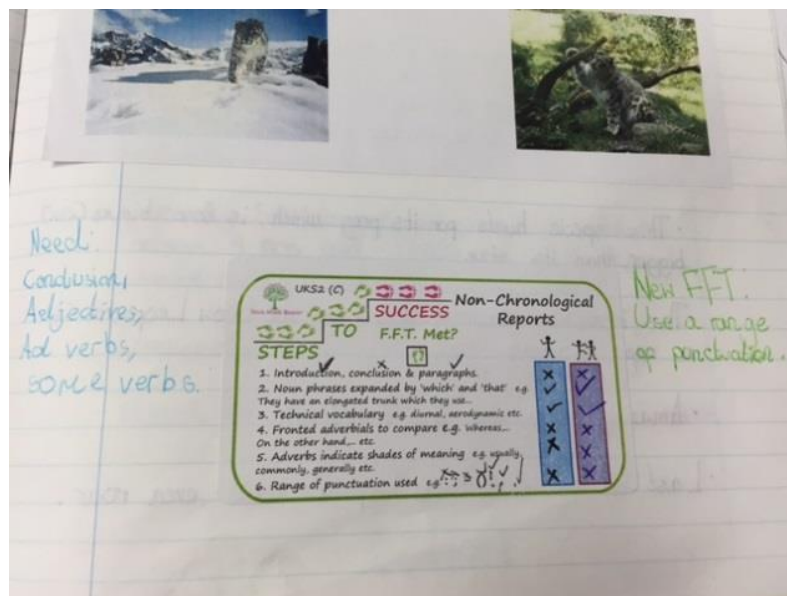 Need:
Conclusion,
Adjectives,
Ad verbs,
some verbs.
UKS2 (C)
STEPS TO SUCCESS
Non-Chronological
Reports
F.F.T. Met?
1. Introduction, conclusion & paragraphs.
2. Noun phrases expanded by 'which' and 'that' e.g.
They have an elongated trunk which they use...
3. Technical vocabulary e.g. diurnal, aerodynamic etc.
4. Fronted adverbials to compare e.g. Whereas,...
On the other hand,... etc.
5. Adverbs indicate shades of meaning e.g. usually,
commonly, generally etc.
6. Range of punctuation used e.g.
New FFT:
Use a range
of punctuation.